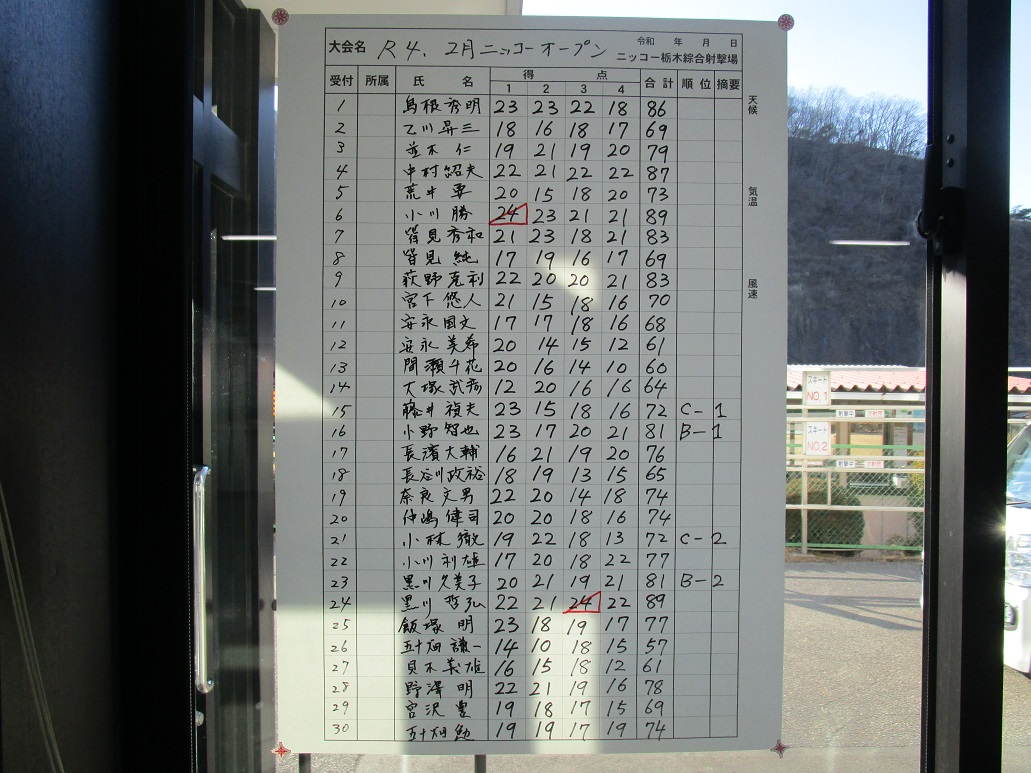 大会名 R4. 2月ニッコーオープン 令和 年 月 日
ニッコー栃木綜合射撃場
受付 所属 氏 名 得 点 合計 順位 摘要
1 2 3 4
1 島根秀明 23 23 22 18 86
2 乙川昇三 18 16 18 17 69
3 並木 仁 19 21 19 20 79
4 中村紹夫 22 21 22 22 87
5 荒井 要 20 15 18 20 73
6 小川 勝 24 23 21 21 89
7 皆見秀和 21 23 18 21 83
8 皆見 純 17 19 16 17 69
9 荻野克利 22 20 20 21 83
10 宮下悠人 21 15 18 16 70
11 安永国文 17 17 18 16 68
12 安永美希 20 14 15 12 61
13 間瀬千花 20 16 14 10 60
14 大塚武 12 20 16 16 64
15 藤井禎夫 23 15 18 16 72 C-1
16 小野智也 23 17 20 21 81 B-1
17 長濱大輔 16 21 19 20 76
18 長谷川政裕 18 19 13 15 65
19 奈良文男 22 20 14 18 74
20 仲嶋健司 20 20 18 16 74
21 小林 徹 19 22 18 13 72 C-2
22 小川利雄 17 20 18 22 77
23 黒川久美子 20 21 19 21 81 B-2
24 黒川哲弘 22 21 24 22 89
25 飯塚 明 23 18 19 17 77
26 五十畑謙一 14 10 18 15 57
27 貝木義雄 16 15 18 12 61
28 野澤 明 22 21 19 16 78
29 宮沢 豊 19 18 17 15 69
30 五十畑 勉 19 19 17 19 74
天候
気温
風速
スキート
NO.1
射撃中
スキート
NO.2
射撃中